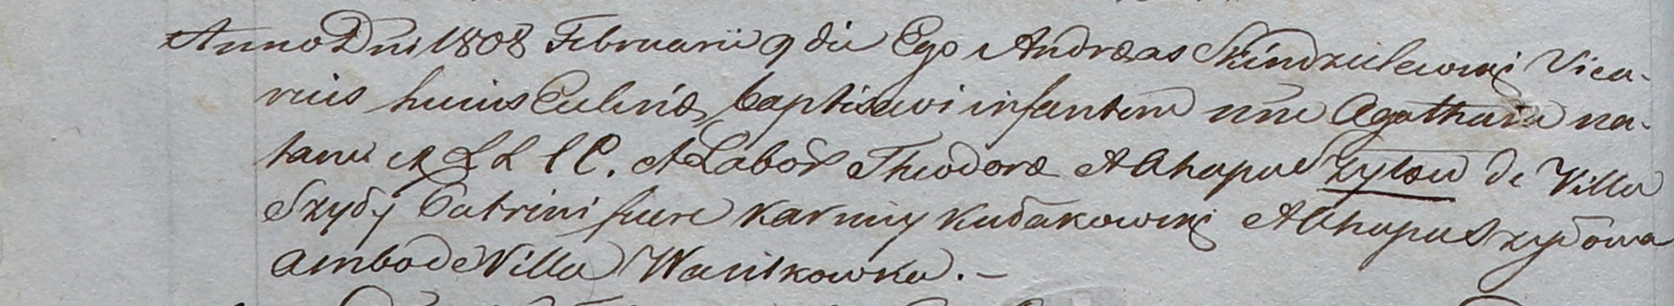 Anno Dni 1808 Februarii 9 die Ego Andreas Skindzielewski Vica-
rius huius Eccle͠siæ baptisavi infantem nne Agatham na-
tam ex LL CC. et Labor Theodoræ Ahapae Zylow de Villa
Szydy Patrini fuere Karniey Kudakowski Ahapa Szydowa
Ambo de Villa Wasilkowka. -